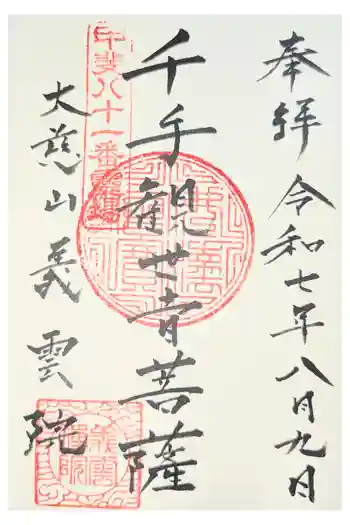 奉拝 令和七年八月九日
甲斐八十一番霊場
千手観世音菩薩
大慈山義雲院
義雲禅院